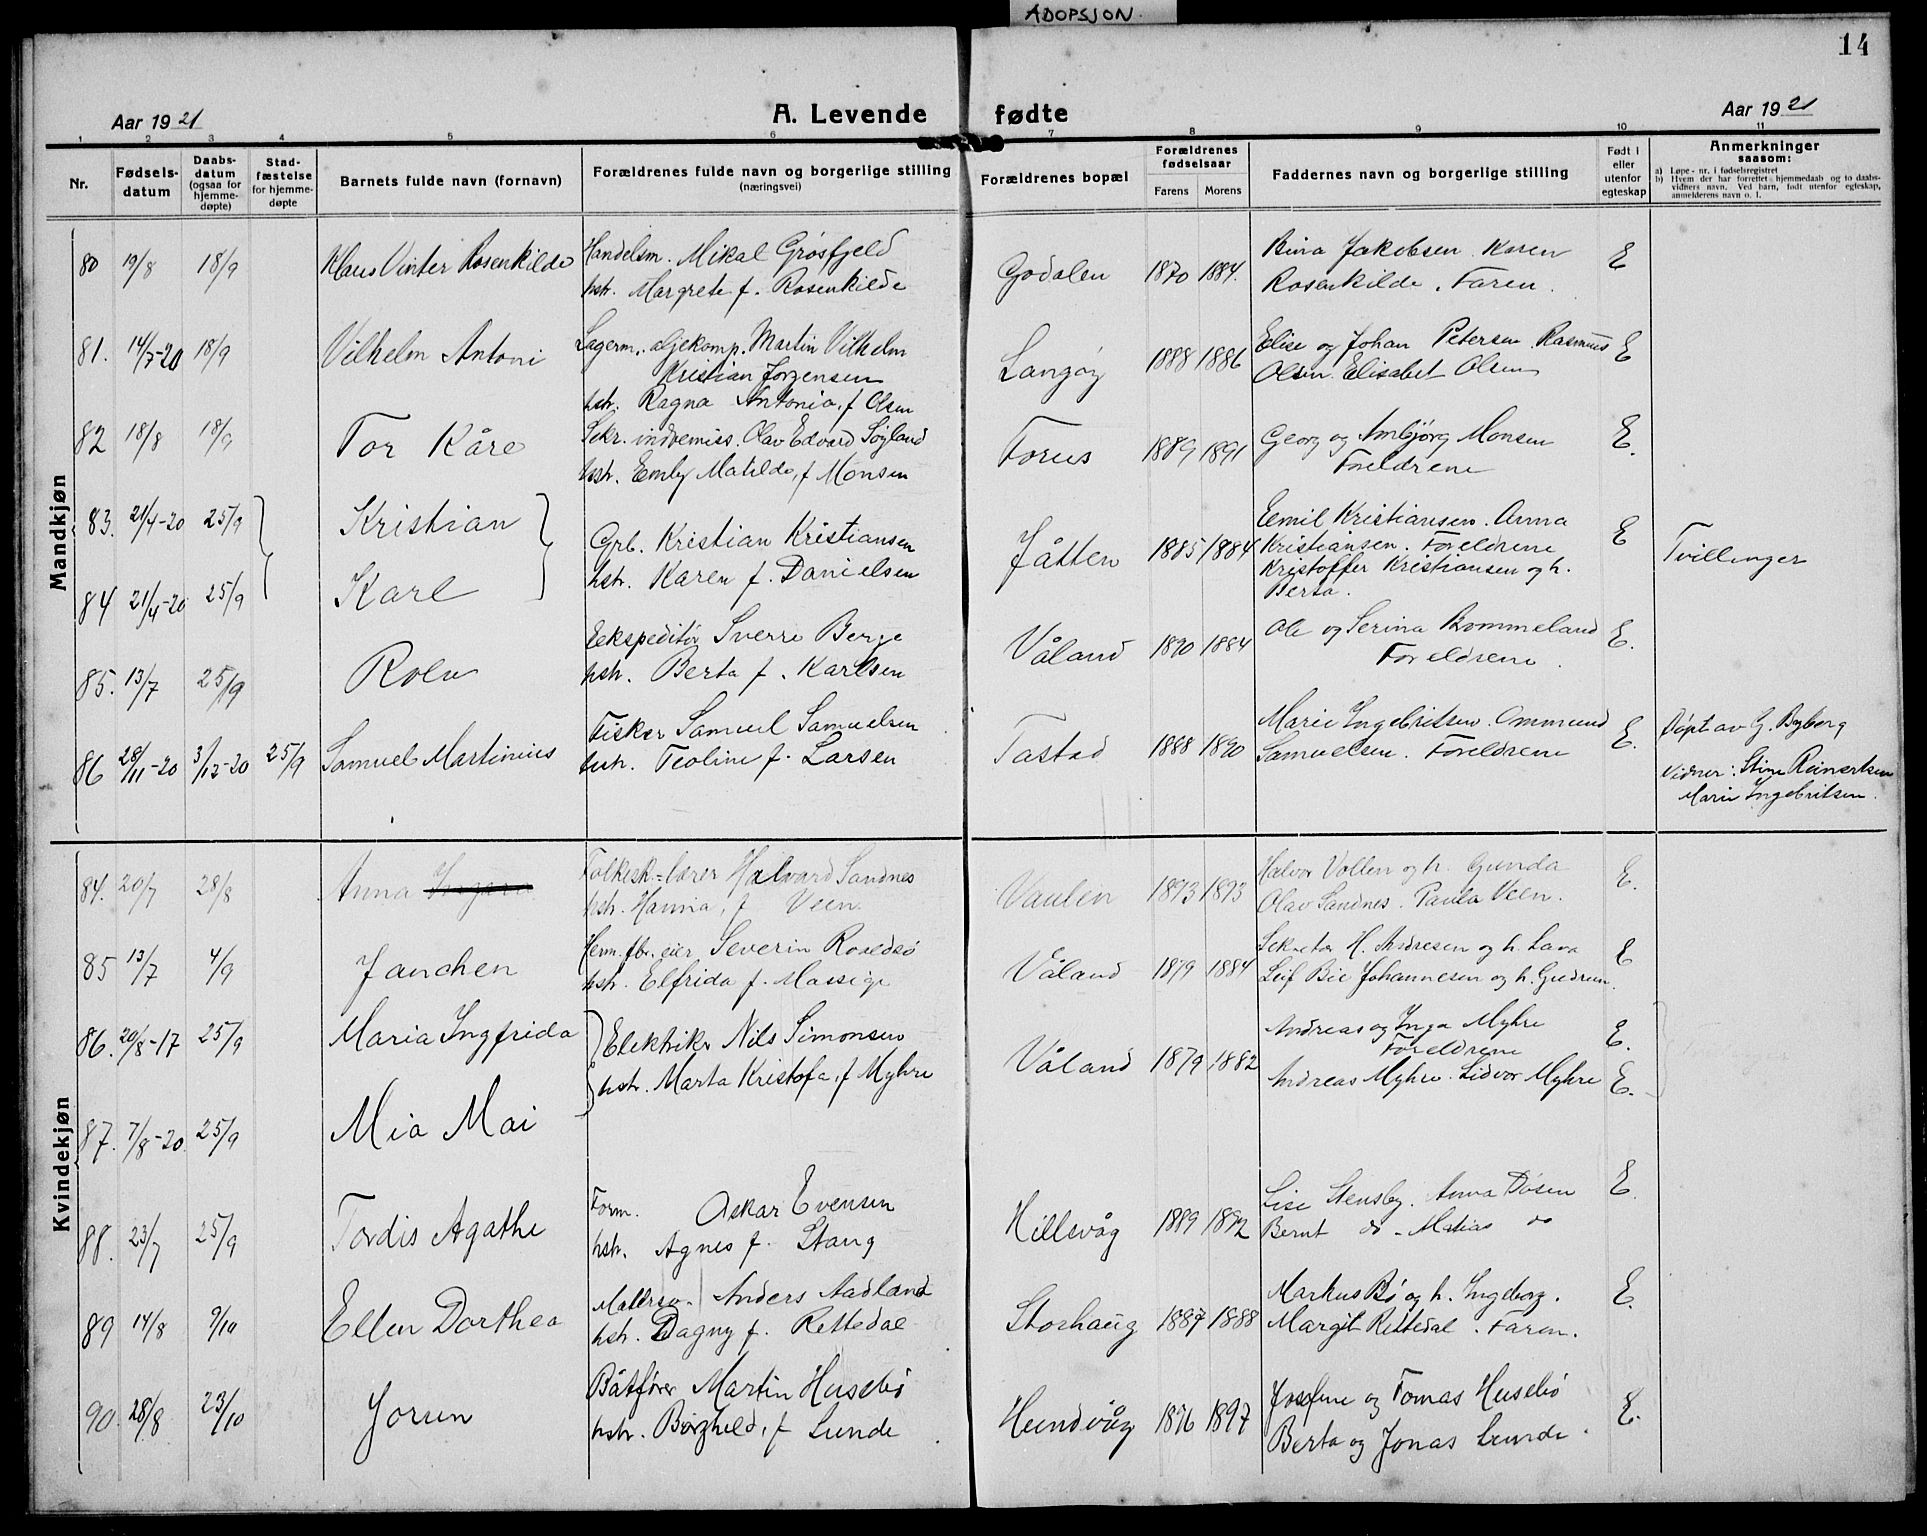 ADOPSJON.
14
Aar 1921
A. Levende fødte
Aar 1921
1 2 3 4 5 6 7 8 9 10 11
Nr.
Fødsels-datum
Daabs-datum (ogsaa for hjemme-døpte)
Stad-fæstelse for hjemme-døpte
Barnets fulde navn (fornavn)
Forældrenes fulde navn og borgerlige stilling (næringsvei)
Forældrenes bopæl
Forældrenes fødselsaar
Farens Morens
Faddernes navn og borgerlige stilling
Født i eller utenfor egteskap
Anmerkninger saasom:
a) Løpe-nr. i fødselsregistret
b) Hvem der har forrettet hjemmedaab og to daabs-vidners navn. Ved barn, født utenfor egteskap, anmelderens navn o. l.
Mandkjøn
80 19/8 18/9 Klaus Vinter Rosenkilde Handelsm. Mikal Grøsfjeld
hstr. Margrete f. Rosenkilde Godalen 1870 1884. Bina Jakobsen Karen
Rosenkilde. Faren. E
81. 14/7-20 18/9 Vilhelm Antoni Lagerm. Martin Vilhelm
Kristian Jørgensen
hstr. Ragna Antonia, f Olsen Langøy 1888 1886 Elise og Johan Petersen Rasmus
Olsen. Elisabet Olsen E
82 18/8 18/9 Tor Kåre Sekr. indremiss. Olav Edvard Søyland
hstr. Emly Matilde, f Monsen Forus 1889 1891 Georg og Ambjørg Monsen
Foreldrene E.
83. 21/4-20 25/9 Kristian
84 21/4-20 25/9 Karl
Grb. Kristian Kristiansen
hstr. Karen f. Danielsen Jåtten 1885 1884 Emil Kristiansen. Anna
Kristiansen. Foreldrene
Kristoffer Kristiansen og h.
Berta. E Tvillinger
85. 13/7 25/9 Rolv Ekspeditør Sverre Berge
hstr. Berta f. Karlsen Våland 1890 1884 Ole og Serina Bommeland
Foreldrene. E.
86 28/11-20 3/12-20 25/9 Samuel Martinius Fisker Samuel Samuelsen
hstr. Teoline f. Larsen Tastad 1888 1890 Marie Ingebritsen. Ommund
Samuelsen. Foreldrene E. Døpt av G. Byberg
Vidner: Stine Reinertsen
Marie Ingebritsen.
Kvindekjøn
84. 20/7 28/8 Anna Folkesk-lærer Halvard Sandnes
hstr. Hanna, f Veen. Vaulen 1893 1893 Halvor Vollen og h. Gunda
Olav Sandnes. Paula Veen. E.
85 13/7 4/9 Janchen Herm.fbr.eier Severin Roaldsø
hstr. Elfrida f. Massige Våland 1879 1884 Sekretær H. Andresen og h. Lava
Leif Bie Johannesen og h. Gudrun. E
86. 20/8-17 25/9 Maria Ingfrida
87. 7/8-20 25/9 Mia Mai
Elektriker Nils Simonsen
hstr. Marta Kristofa, f Myhre Våland 1879 1882 Andreas og Inga Myhre
Foreldrene E.
Andreas Myhre. Lidvor Myhre E.
88. 23/7 25/9 Tordis Agathe Form. Oskar Evensen
hstr. Agnes f. Stang Hillevåg 1889 1892 Lise Stensby. Anna Døsen
Bernt do - Matias do E
89 14/8 9/10 Ellen Dorthea Anders Aadland
hstr. Dagny f. Rettedal Storhaug 1887 1888 Markus Bø og h. Ingeborg.
Margit Rettedal. Faren. E.
90. 28/8 23/10 Jorun Båtfører Martin Husebø
hstr. Borghild, f Lunde Hundvåg 1896 1897 Josefine og Tomas Husebø
Berta og Jonas Lunde. E.